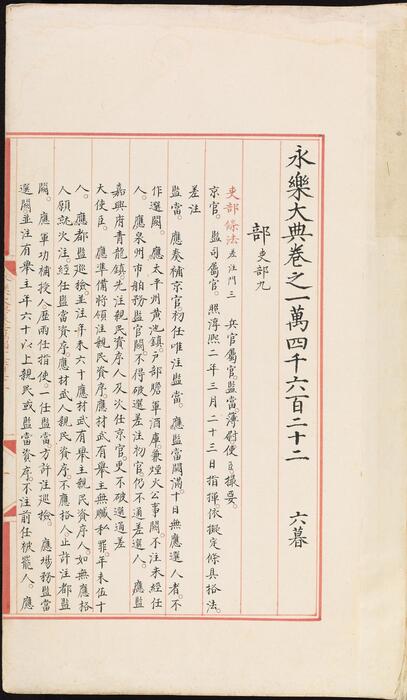 永樂大典卷之一萬四千六百二十二 六暮
部 吏部九
吏部條法 差注門三 兵官屬官。監當。簿尉使臣。撮要。
京官。監司屬官。照淳熙二年三月二十三日指揮。依擬定條具格法。
差注
監當。應奏補京官初任。唯注監當。應監當闕。滿十日無應選人者。不
作選闕。應太平州黃池鎮戶部贍軍酒庫。兼煙火公事闕。不注未經任
人。應泉州市舶務監官闕。不得破選差注初官。仍不通差選人。應監
嘉興府青龍鎮。先注親民資序人。及次任京官。更不破選通差
大使臣。應準備將領。注親民資序。應材武有舉主無贓私罪。年未伍十
人。應都監巡檢。並注年未六十應材武有舉主親民資序人。如無應格
人願就。次注經任監當資序。應材武人親民資序不應格人。止許注都監
闕。應軍功補授人。歷兩任指使。一任監當。方許注巡檢。應場務監當
選闕。並注有舉主年六十以上親民或監當資序。不注前任被罷人。應